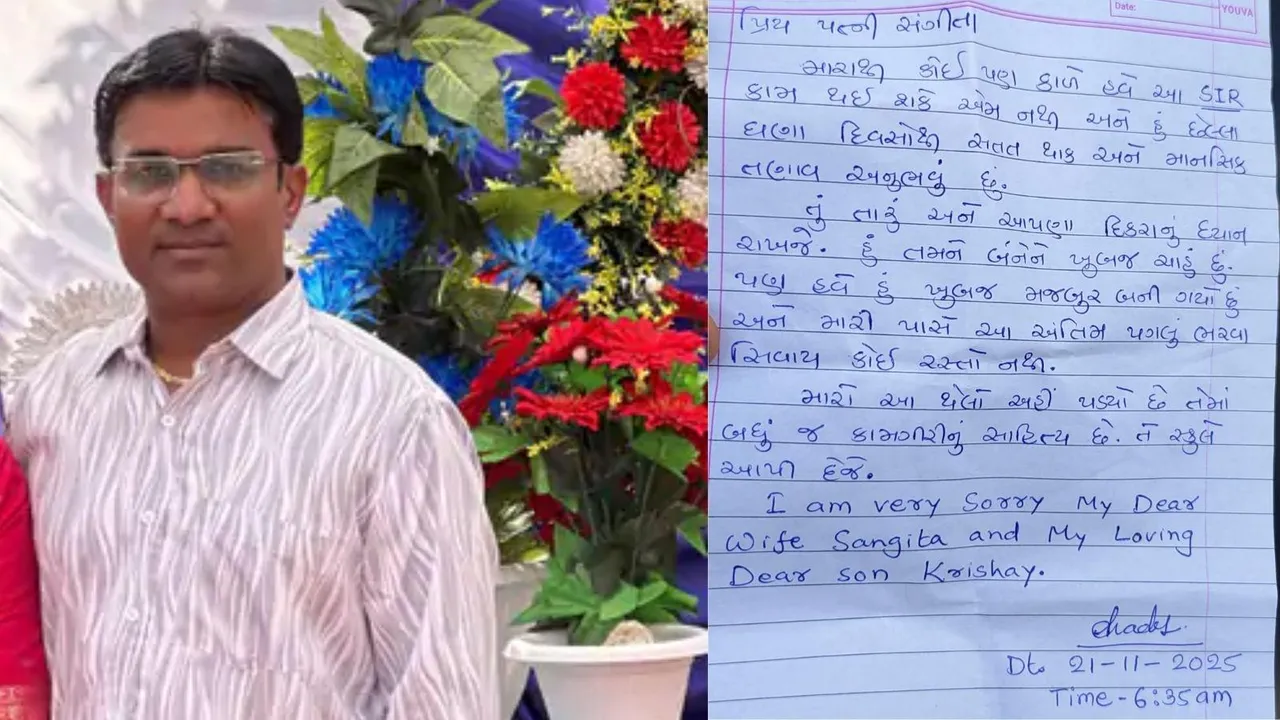 Date:
YOUVA
પ્રિય પત્ની સંગીતા
મારાથી કોઈ પણ કાળે હવે આ SIR
કામ થઈ શકે એમ નથી અને હું છેલ્લા
ઘણા દિવસોથી સતત થાક અને માનસિક
તણાવ અનુભવું છું.
તું તારું અને આપણા દિકરાનું ધ્યાન
રાખજે. હું તમને બંનેને ખુબજ ચાહું છું.
પણ હવે હું ખુબજ મજબુર બની ગયો છું
અને મારી પાસે આ અંતિમ પગલું ભરવા
સિવાય કોઈ રસ્તો નથી.
મારો આ થેલો અહીં પડ્યો છે તેમાં
બધું જ કામગીરીનું સાહિત્ય છે. તે સ્કુલે
આપી દેજે.
I am very Sorry My Dear
Wife Sangita and My Loving
Dear son Krishay.
Dt. 21-11-2025
Time-6:35am